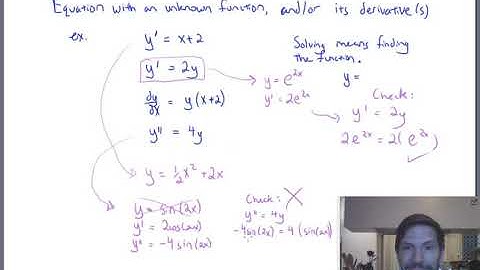 Equation with an unknown function, and/or its derivative(s)
ex.
y' = x+2
y' = 2y
dy/dx = y(x+2)
y" = 4y
Solving means finding
the function.
y=
y = e^2x
y' = 2e^2x
Check:
y' = 2y
2e^2x = 2(e^2x)
y = 1/2 x^2 + 2x
y = sin(2x)
y' = 2cos(2x)
y" = -4sin(2x)
Check:
y" = 4y
-4sin(2x) = 4(sin(2x)